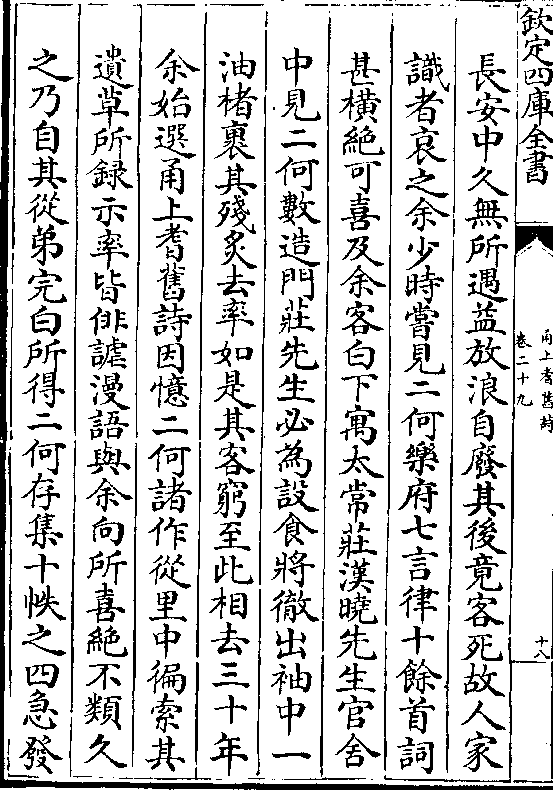 欽定四庫全書
甬上耆舊詩
卷二十九
十八
長安中久無所遇益放浪自廢其後竟客死故人家
識者哀之余少時嘗見二何樂府七言律十餘首詞
甚橫絶可喜及余客白下寓太常莊漢曉先生官舍
中見二何數造門莊先生必為設食將徹出袖中一
油楮裹其殘炙去率如是其客窮至此相去三十年
余始選甬上耆舊詩因憶二何諸作從里中徧索其
遺草所録示率皆俳謔漫語與余向所喜絶不類久
之乃自其從弟完白所得二何存集十帙之四急發